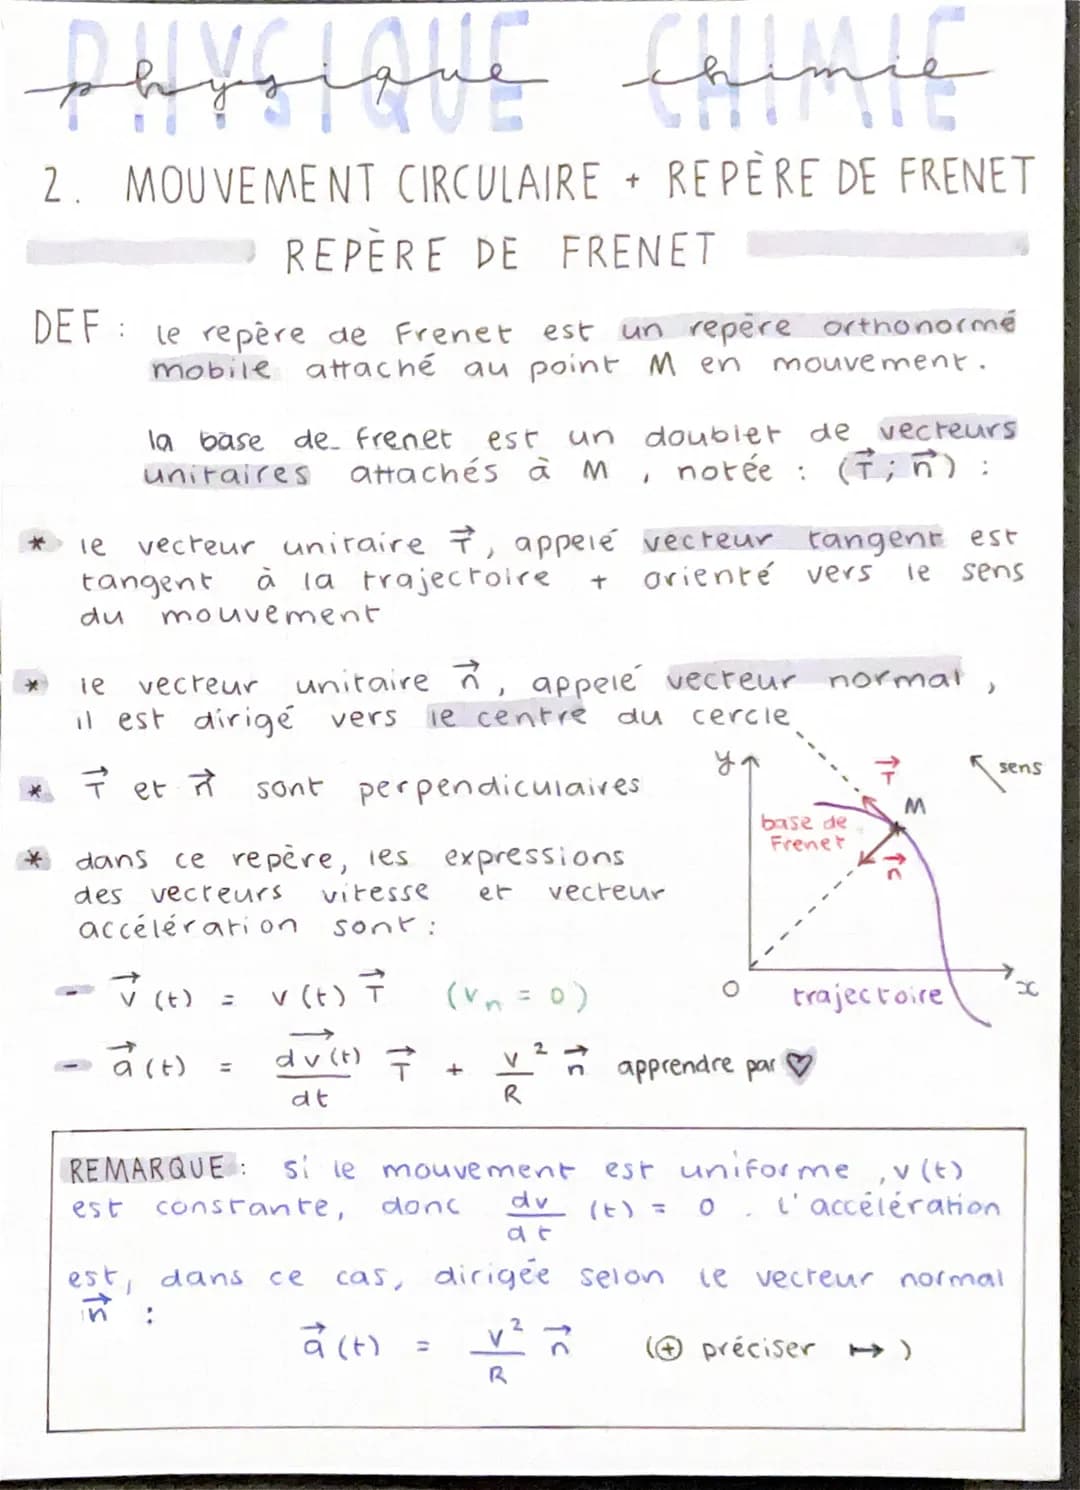 PHYSIQUE CHIMIE
physique chimie
2. MOUVEMENT CIRCULAIRE + REPÈRE DE FRENET
REPÈRE DE FRENET
DEF : le repère de Frenet est un repère orthonormé
mobile attaché au point M en mouvement.
la base de frenet est un doublet de vecteurs
unitaires attachés à M , notée : (T⃗ ; n⃗) :
* le vecteur unitaire T⃗, appelé vecteur tangent est
tangent à la trajectoire + orienté vers le sens
du mouvement
* le vecteur unitaire n⃗, appelé vecteur normal,
il est dirigé vers le centre du cercle
* T⃗ et n⃗ sont perpendiculaires
* dans ce repère, les expressions
des vecteurs vitesse et vecteur
accélération sont :
y T⃗ sens
M
base de
Frenet
n⃗
O trajectoire x
- v⃗(t) = v(t) T⃗ (vn = 0)
- a⃗(t) = dv(t)⃗/dt T⃗ + v²/R n⃗ apprendre par ♡
REMARQUE : si le mouvement est uniforme, v(t)
est constante, donc dv/dt (t) = 0 . L'accélération
est, dans ce cas, dirigée selon le vecteur normal
n⃗ :
a⃗(t) = v²/R n⃗ (⊕ préciser ↦)